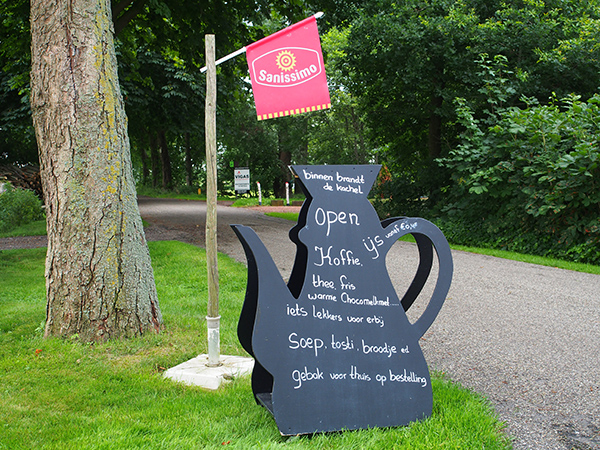 Sanissimo
VIGAS
binnen brandt
de kachel
Open
Koffie,
ijs vanaf
thee, fris
warme Chocomelk met...
iets lekkers voor erbij
Soep, tosti, broodje ed
gebak voor thuis op bestelling